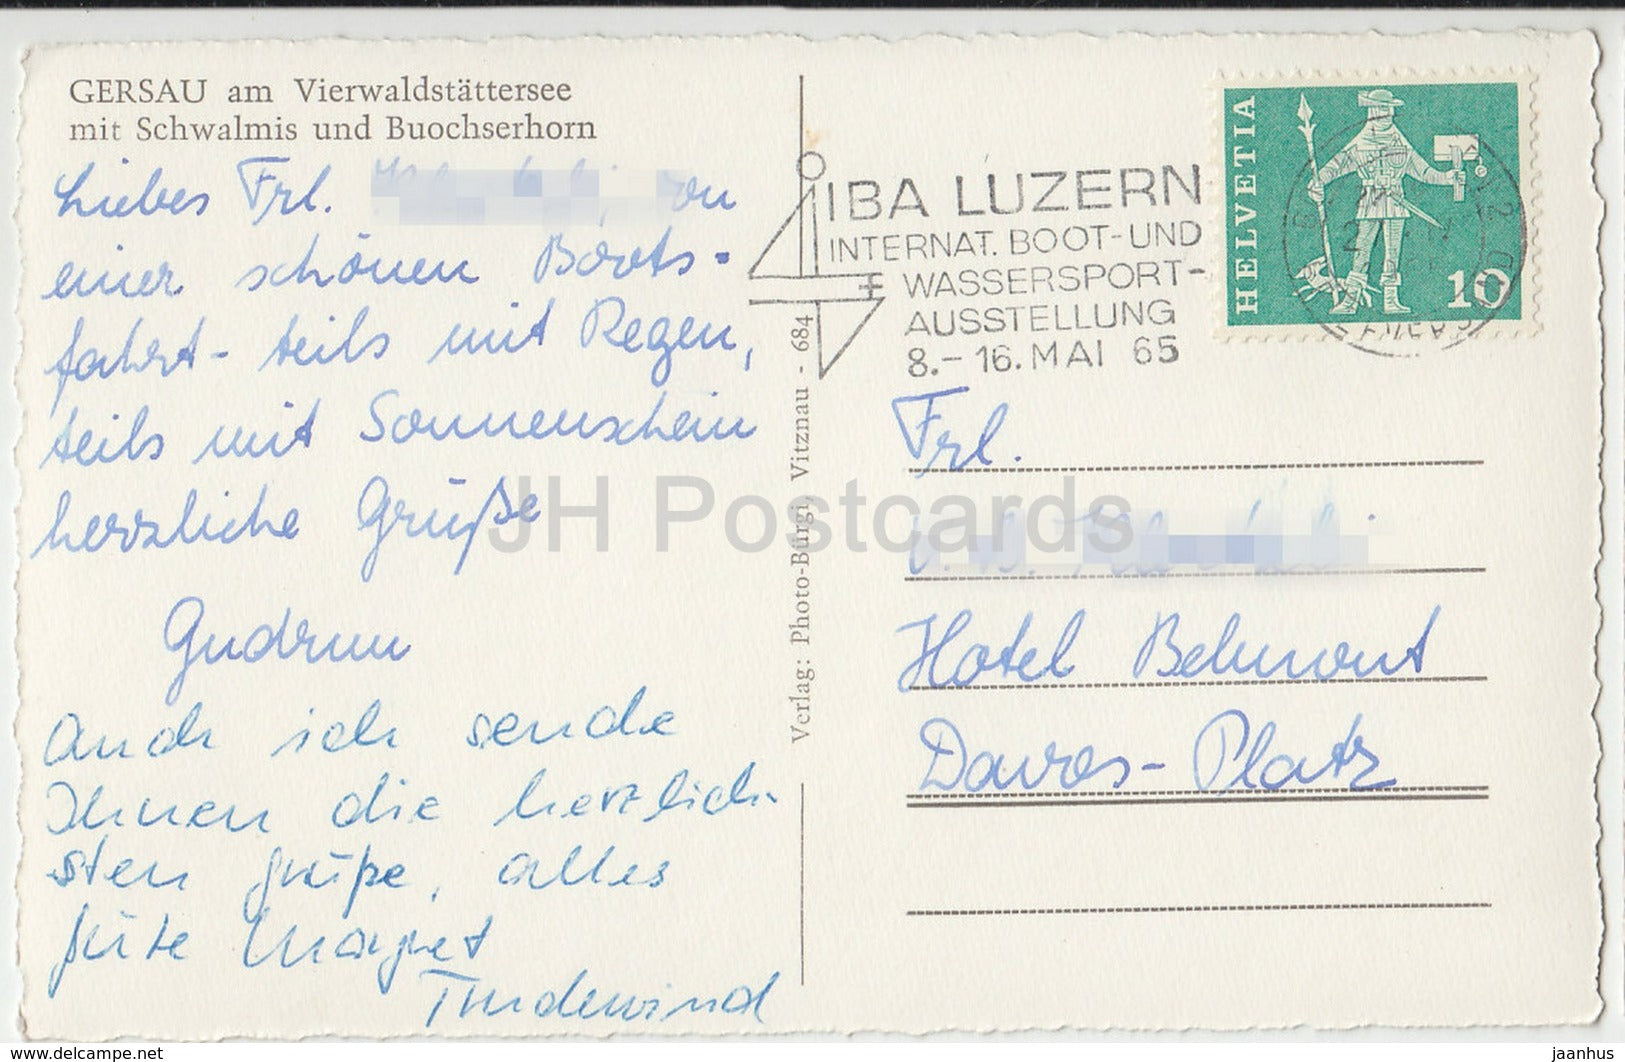 GERSAU am Vierwaldstättersee
mit Schwalmis und Buochserhorn
Liebes Frl. von
einer schönen Boots-
fahrt - teils mit Regen,
teils mit Sonnenschein
herzliche Grüße
Gudrun
Auch ich sende
Ihnen die herzlich-
sten Grüße, alles
Gute Margret
Verlag: Photo-Bürgi, Vitznau - 684
IBA LUZERN
INTERNAT. BOOT-UND
WASSERSPORT-
AUSSTELLUNG
8.-16. MAI 65
HELVETIA
10
Frl.
Hotel Belmont
Davos-Platz
JH Postcards
www.delcampe.net
jaanhus